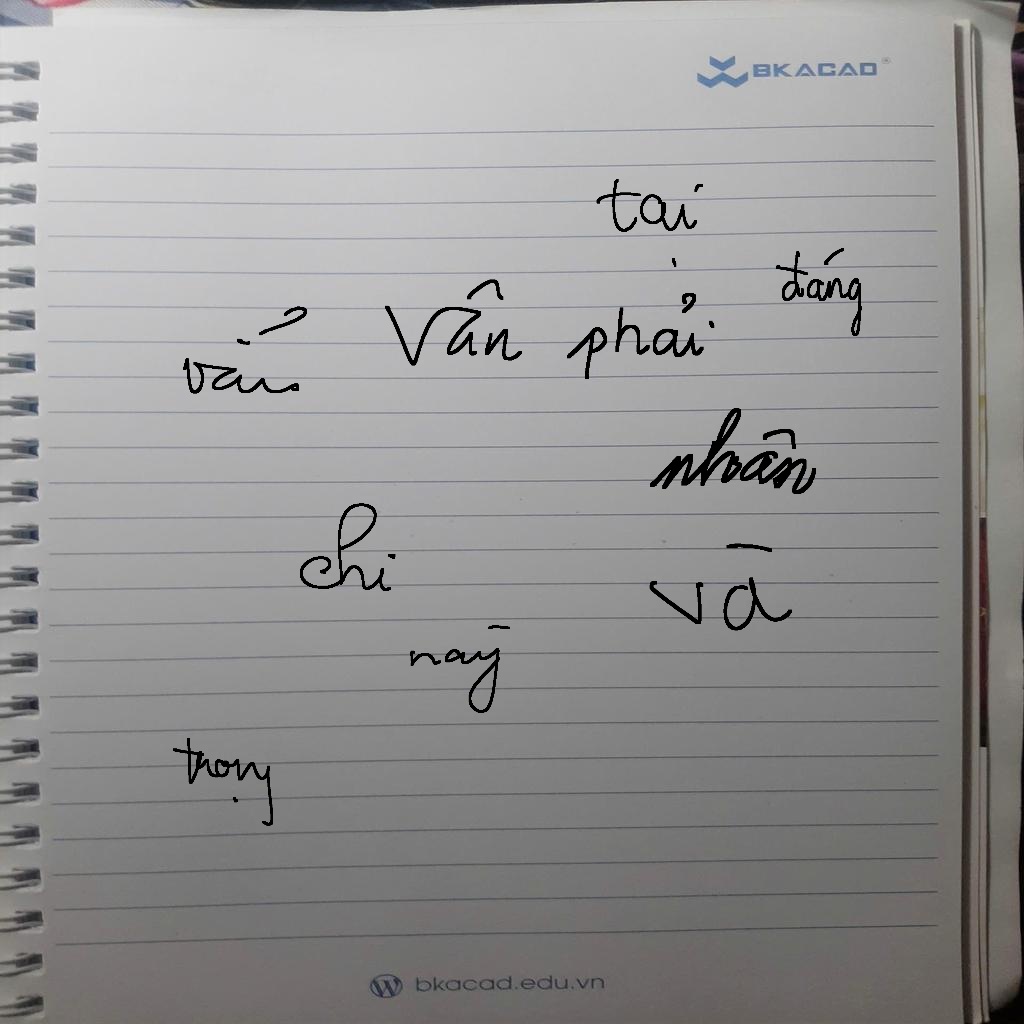 BKACAD®
tại
đáng
Vân phải
nhân
chi
và
này
trọng
bkacad.edu.vn